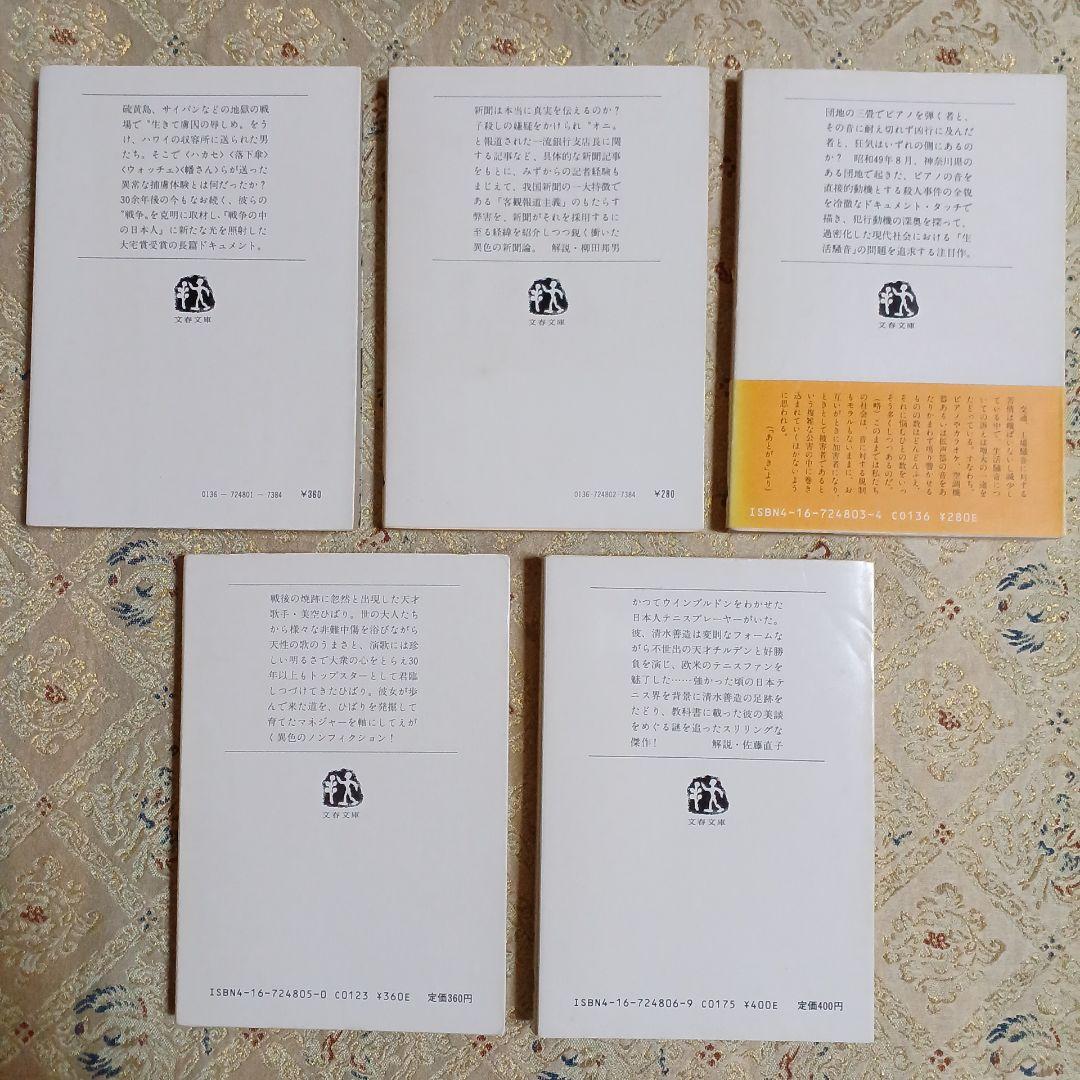 硫黄島、サイパンなどの地獄の戦
場で〝生きて虜囚の辱しめ〟をう
け、ハワイの収容所に送られた男
たち。そこで〈ハカセ〉〈落下傘〉
〈ウォッチェ〉〈幡さん〉らが送った
異常な捕虜体験とは何だったか？
30余年後の今もなお続く、彼らの
〝戦争〟を克明に取材し、『戦争の中
の日本人』に新たな光を照射した
大宅賞受賞の長篇ドキュメント。
文春文庫
0136－724801－7384 ￥360
新聞は本当に真実を伝えるのか？
子殺しの嫌疑をかけられ〝オニ〟
と報道された一流銀行支店長に関
する記事など、具体的な新聞記事
をもとに、みずからの記者経験も
まじえて、我国新聞の一大特徴で
ある「客観報道主義」のもたらす
弊害を、新聞がそれを採用するに
至る経緯を紹介しつつ鋭く衝いた
異色の新聞論。 解説・柳田邦男
文春文庫
0136-724802-7384 ￥280
団地の三畳でピアノを弾く者と、
その音に耐え切れず凶行に及んだ
者と、狂気はいずれの側にあるの
か？ 昭和49年８月、神奈川県の
ある団地で起きた、ピアノの音を
直接的動機とする殺人事件の全貌
を冷徹なドキュメント・タッチで
描き、犯行動機の深奥を探って、
過密化した現代社会における「生
活騒音」の問題を追求する注目作。
文春文庫
交通、工場騒音に対する
苦情は横ばいないし減少し
ている中で、生活騒音につ
いての訴えは増大の一途を
たどっている。すなわち、
ピアノやカラオケ、空調機
器あるいは拡声器の音をあ
たりかまわず鳴り響かせる
ものの数はどんどんふえ、
それに悩むひとの数をいっ
そう多くしつつあるのだ。
（略）このままでは私たち
の社会は、音に対する規制
もモラルもないままに、お
互いがときに加害者になり、
ときとして被害者であると
いう複雑な公害の中に巻き
込まれていくほかないよう
に思われる。
（「あとがき」より）
ISBN4-16-724803-4 C0136 ￥280E
戦後の焼跡に忽然と出現した天才
歌手・美空ひばり。世の大人たち
から様々な非難中傷を浴びながら
天性の歌のうまさと、演歌には珍
しい明るさで大衆の心をとらえ30
年以上もトップスターとして君臨
しつづけてきたひばり。彼女が歩
んで来た道を、ひばりを発掘して
育てたマネジャーを軸にしてえが
く異色のノンフィクション！
文春文庫
ISBN4-16-724805-0 C0123 ￥360E 定価360円
かつてウインブルドンをわかせた
日本人テニスプレーヤーがいた。
彼、清水善造は変則なフォームな
がら不世出の天才チルデンと好勝
負を演じ、欧米のテニスファンを
魅了した……強かった頃の日本テ
ニス界を背景に清水善造の足跡を
たどり、教科書に載った彼の美談
をめぐる謎を追ったスリリングな
傑作！ 解説・佐藤直子
文春文庫
ISBN4-16-724806-9 C0175 ￥400E 定価400円